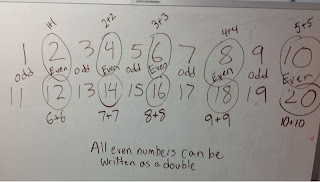 1+1 2+2 3+3 4+4 5+5
1 2 3 4 5 6 7 8 9 10
odd Even odd Even odd Even odd Even odd Even
11 12 13 14 15 16 17 18 19 20
6+6 7+7 8+8 9+9 10+10
All even numbers can be
written as a double